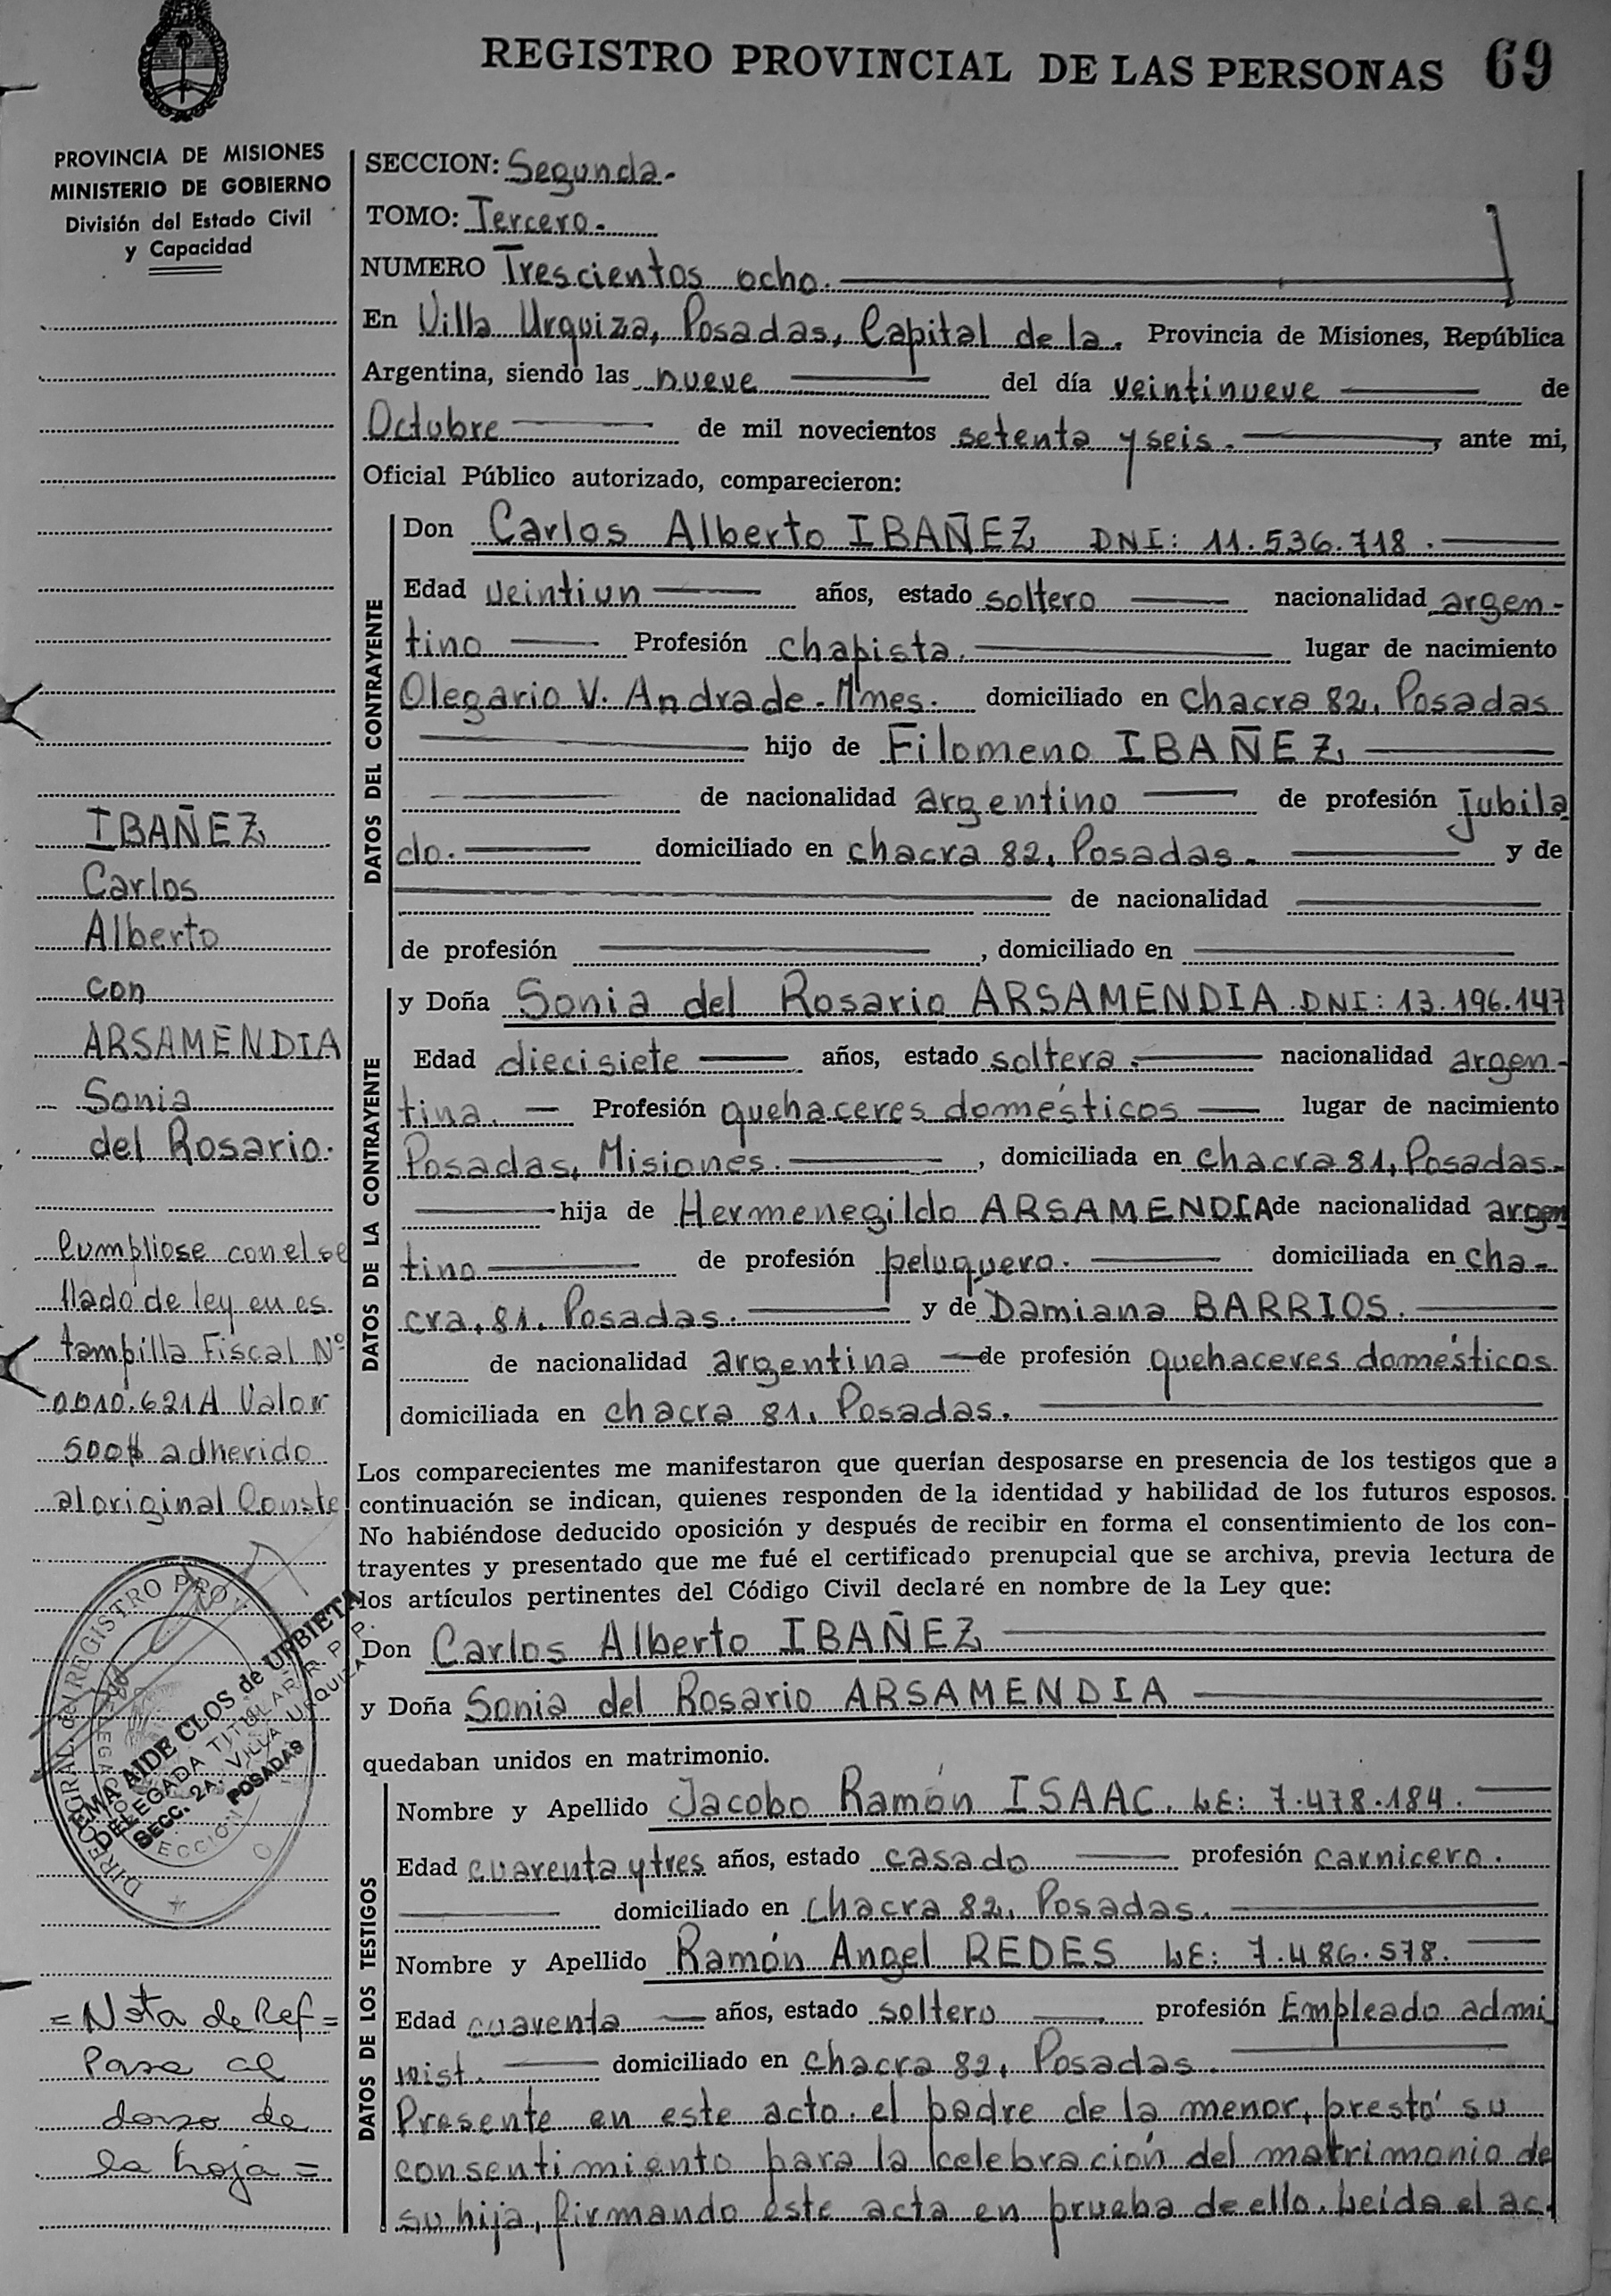 REGISTRO PROVINCIAL DE LAS PERSONAS 69
PROVINCIA DE MISIONES
MINISTERIO DE GOBIERNO
División del Estado Civil
y Capacidad
SECCION: Segunda.-
TOMO: Tercero.-
NUMERO Trescientos ocho.
En Villa Urquiza, Posadas, Capital de la. Provincia de Misiones, República
Argentina, siendo las nueve del día veintinueve de
Octubre de mil novecientos setenta y seis. , ante mi,
Oficial Público autorizado, comparecieron:
DATOS DEL CONTRAYENTE
Don Carlos Alberto IBAÑEZ DNI: 11.536.718.
Edad veintiun años, estado soltero nacionalidad argen-
tino Profesión chapista. lugar de nacimiento
Olegario V. Andrade. Mnes. domiciliado en chacra 82, Posadas
hijo de Filomeno IBAÑEZ
de nacionalidad argentino de profesión jubila
do. domiciliado en chacra 82, Posadas. y de
de nacionalidad
de profesión , domiciliado en
DATOS DE LA CONTRAYENTE
y Doña Sonia del Rosario ARSAMENDIA DNI: 13.196.147
Edad diecisiete años, estado soltera. nacionalidad argen-
tina. Profesión quehaceres domésticos lugar de nacimiento
Posadas, Misiones. , domiciliada en chacra 81, Posadas.
hija de Hermenegildo ARSAMENDIA de nacionalidad argen
tino de profesión peluquero. domiciliada en cha-
cra, 81, Posadas. y de Damiana BARRIOS.
de nacionalidad argentina de profesión quehaceres domésticos
domiciliada en chacra 81, Posadas.
Los comparecientes me manifestaron que querían desposarse en presencia de los testigos que a
continuación se indican, quienes responden de la identidad y habilidad de los futuros esposos.
No habiéndose deducido oposición y después de recibir en forma el consentimiento de los con-
trayentes y presentado que me fué el certificado prenupcial que se archiva, previa lectura de
los artículos pertinentes del Código Civil declaré en nombre de la Ley que:
Don Carlos Alberto IBAÑEZ
y Doña Sonia del Rosario ARSAMENDIA
quedaban unidos en matrimonio.
DATOS DE LOS TESTIGOS
Nombre y Apellido Jacobo Ramón ISAAC. LE: 7.478.184.
Edad cuarenta y tres años, estado casado profesión carnicero.
domiciliado en chacra 82, Posadas.
Nombre y Apellido Ramón Angel REDES LE: 7.486.578.
Edad cuarenta años, estado soltero profesión Empleado admi
nist. domiciliado en chacra 82, Posadas.
Presente en este acto. el padre de la menor, prestó su
consentimiento para la celebración del matrimonio de
su hija, firmando este acta en prueba de ello. Leida el ac.
IBAÑEZ
Carlos
Alberto
con
ARSAMENDIA
Sonia
del Rosario.
Cumpliose con el se
llado de ley en es
tampilla Fiscal Nº
0010.621A Valor
500$ adherido
al original Conste
DIREC. GRAL. del REGISTRO PROV
EMA AIDE CLOS de URBIETA
DELEGADA TITULAR R. P. P.
SECC. 2A. VILLA URQUIZA
POSADAS
SECCION
= Nota de Ref =
Pasa al
dorso de
la hoja =